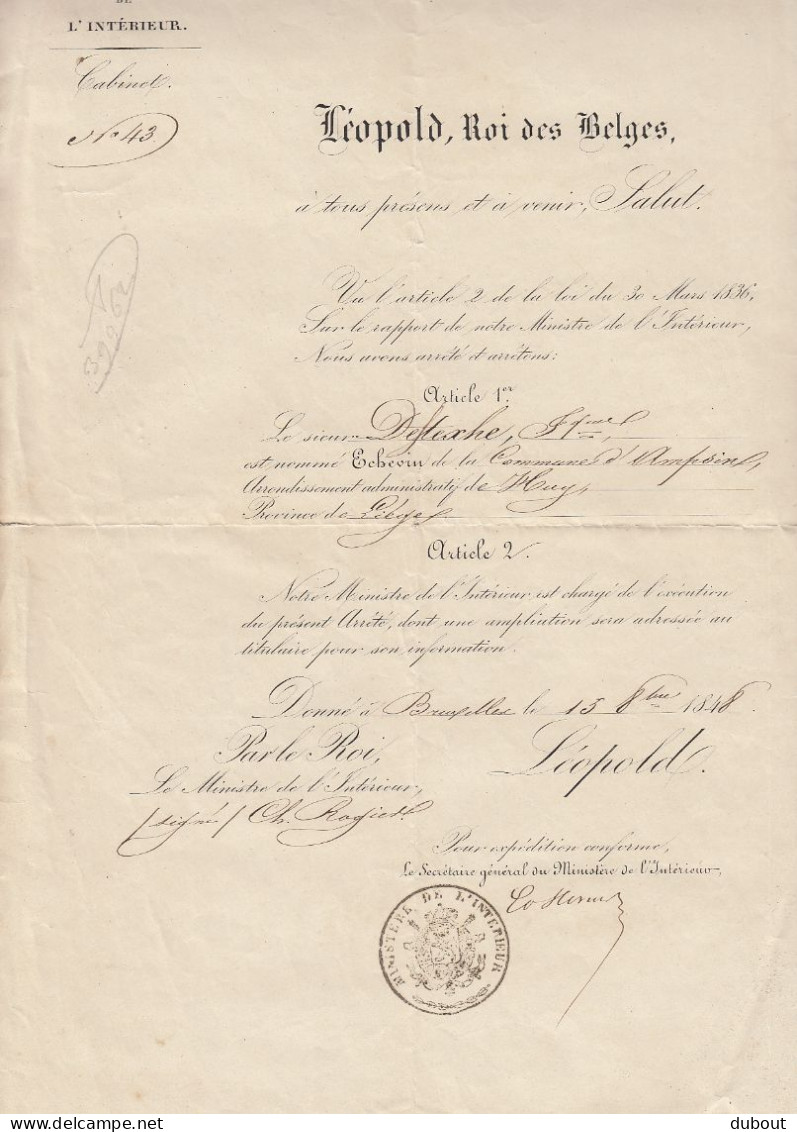 DE
L'INTÉRIEUR.
Cabinet.
No 43
Léopold, Roi des Belges,
à tous présens et à venir, Salut.
Vu l'article 2 de la loi du 30 Mars 1836,
Sur le rapport de notre Ministre de l'Intérieur,
Nous avons arrêté et arrêtons:
Article 1er.
Le sieur Deflexhe,
est nommé Echevin de la Commune d'Ampsin,
Arrondissement administratif de Huy,
Province de Liège.
Article 2.
Notre Ministre de l'Intérieur est chargé de l'exécution
du présent Arrêté, dont une ampliation sera adressée au
titulaire pour son information.
Donné à Bruxelles le 15 8bre 1848.
Par le Roi,
Léopold.
Le Ministre de l'Intérieur,
/signé/ Ch. Rogier.
Pour expédition conforme,
Le Secrétaire général du Ministère de l'Intérieur,
MINISTERE DE L'INTERIEUR
delcampe.net
dubout